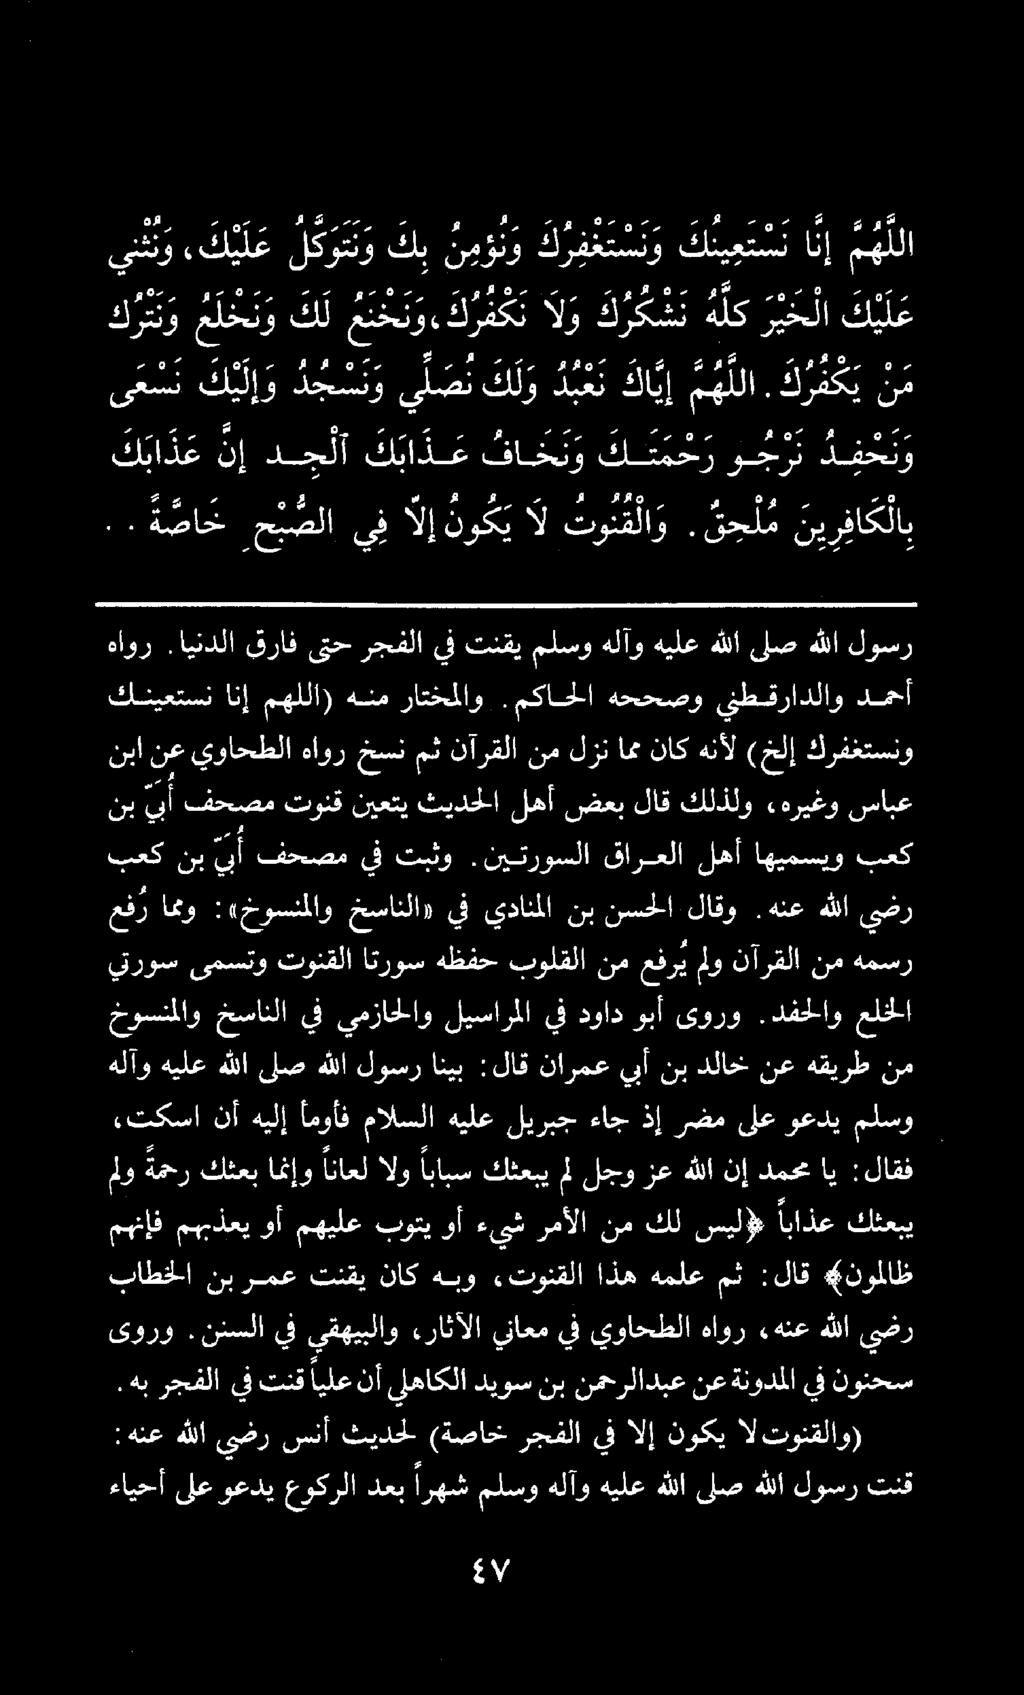 اللَّهُمَّ إِنَّا نَسْتَعِينُكَ وَنَسْتَغْفِرُكَ وَنُؤْمِنُ بِكَ وَنَتَوَكَّلُ عَلَيْكَ، وَنُثْنِي
عَلَيْكَ الْخَيْرَ كُلَّهُ نَشْكُرُكَ وَلَا نَكْفُرُكَ، وَنَخْنَعُ لَكَ وَنَخْلَعُ وَنَتْرُكُ
مَنْ يَكْفُرُكَ. اللَّهُمَّ إِيَّاكَ نَعْبُدُ وَلَكَ نُصَلِّي وَنَسْجُدُ وَإِلَيْكَ نَسْعَى
وَنَحْفِدُ نَرْجُو رَحْمَتَكَ وَنَخَافُ عَذَابَكَ الْجِدَ إِنَّ عَذَابَكَ
بِالْكَافِرِينَ مُلْحِقٌ. وَالْقُنُوتُ لَا يَكُونُ إِلَّا فِي الصُّبْحِ خَاصَّةً . .
رسول الله صلى الله عليه وآله وسلم يقنت في الفجر حتى فارق الدنيا. رواه
أحمد والدارقطني وصححه الحاكم. والمختار منه (اللهم إنا نستعينك
ونستغفرك إلخ) لأنه كان مما نزل من القرآن ثم نسخ رواه الطحاوي عن ابن
عباس وغيره، ولذلك قال بعض أهل الحديث يتعين قنوت مصحف أُبَيّ بن
كعب ويسميها أهل العراق السورتين. وثبت في مصحف أُبَيّ بن كعب
رضي الله عنه. وقال الحسن بن المنادي في «الناسخ والمنسوخ»: ومما رُفع
رسمه من القرآن ولم يُرفع من القلوب حفظه سورتا القنوت وتسمى سورتي
الخلع والحفد. وروى أبو داود في المراسيل والحازمي في الناسخ والمنسوخ
من طريقه عن خالد بن أبي عمران قال: بينا رسول الله صلى الله عليه وآله
وسلم يدعو على مضر إذ جاء جبريل عليه السلام فأومأ إليه أن اسكت،
فقال: يا محمد إن الله عز وجل لم يبعثك سباباً ولا لعاناً وإنما بعثك رحمةً ولم
يبعثك عذاباً ﴿ليس لك من الأمر شيء أو يتوب عليهم أو يعذبهم فإنهم
ظالمون﴾ قال: ثم علمه هذا القنوت، وبه كان يقنت عمر بن الخطاب
رضي الله عنه، رواه الطحاوي في معاني الآثار، والبيهقي في السنن. وروى
سحنون في المدونة عن عبدالرحمن بن سويد الكاهلي أن علياً قنت في الفجر به.
(والقنوت لا يكون إلا في الفجر خاصة) لحديث أنس رضي الله عنه:
قنت رسول الله صلى الله عليه وآله وسلم شهراً بعد الركوع يدعو على أحياء
٤٧